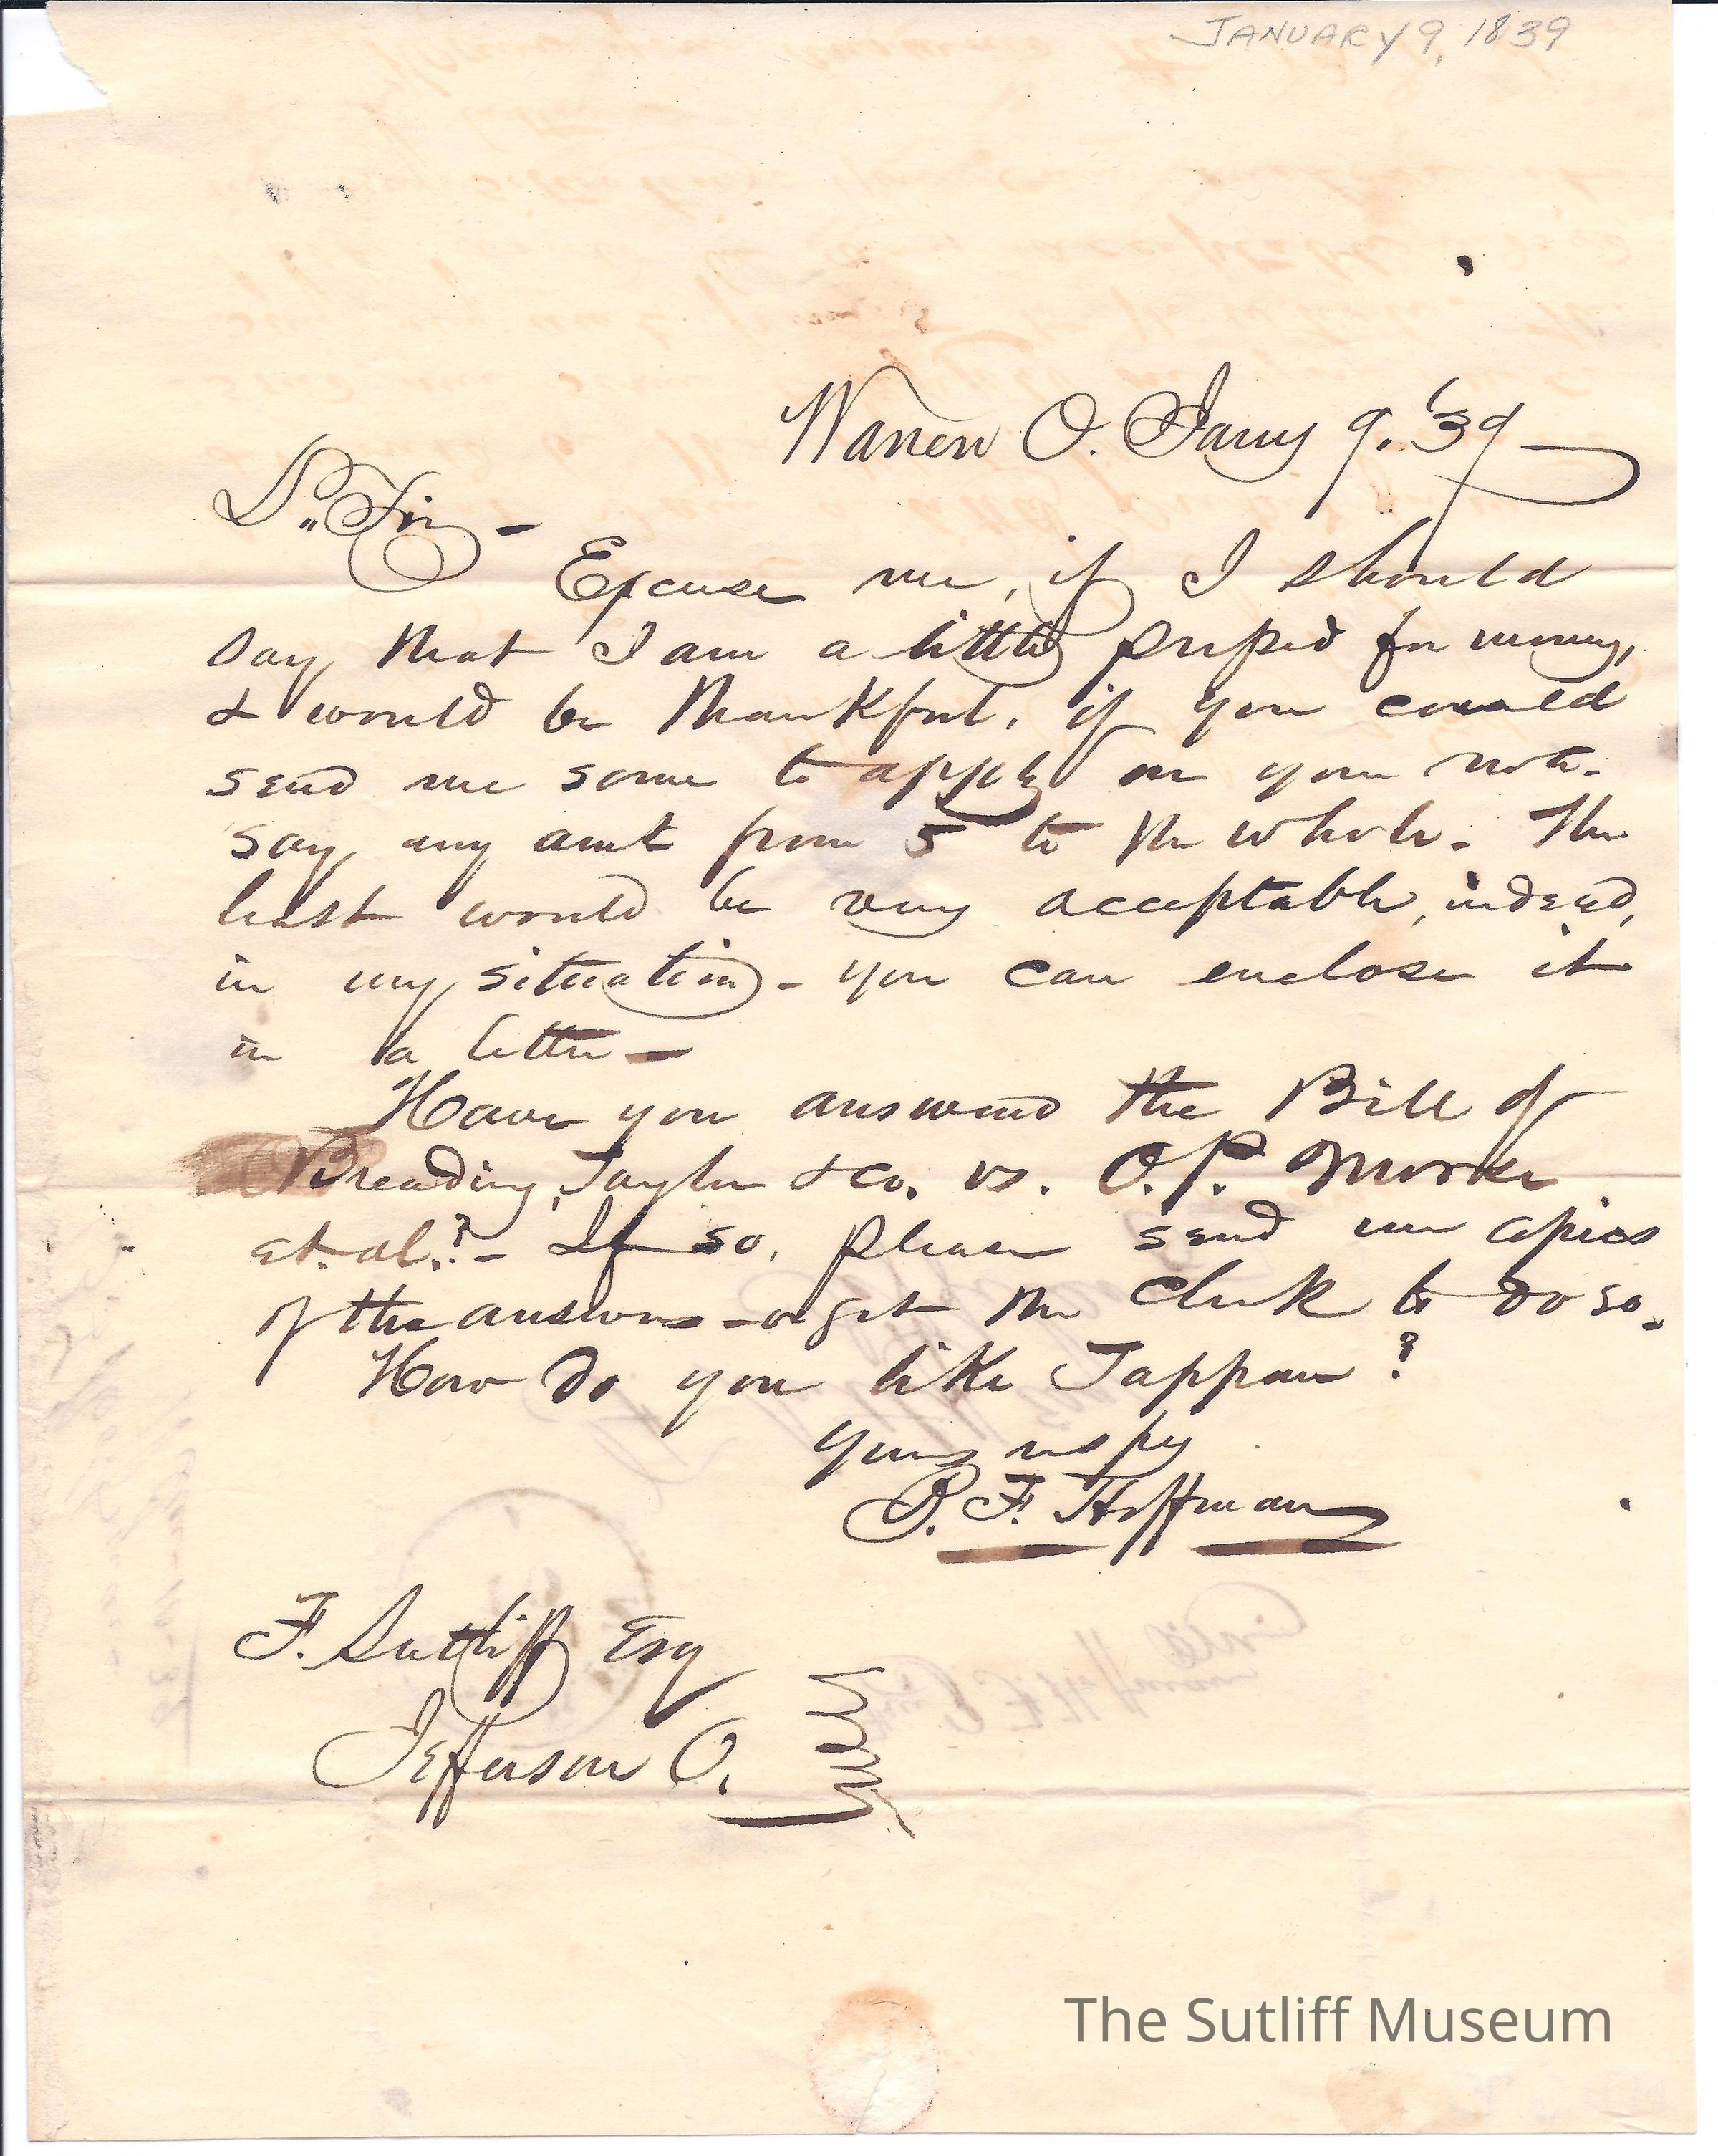 JANUARY 9, 1839
Warren O. Jany 9. '39
D. Sir -
Excuse me, if I should
say that I am a little pressed for money,
& would be thankful, if you could
send me some to apply on your note.
say any amt from 5 to the whole. The
last would be very acceptable, indeed,
in my situation - you can enclose it
in a letter -
Have you answered the Bill of
Breading, Taylor & co. vs. O.P.
et. al.? - If so, please send me copies
of the answers - or get the Clerk to do so.
How do you like Tappan?
yours respy
B. F. Hoffman
F. Sutliff Esq
Jefferson O.
The Sutliff Museum